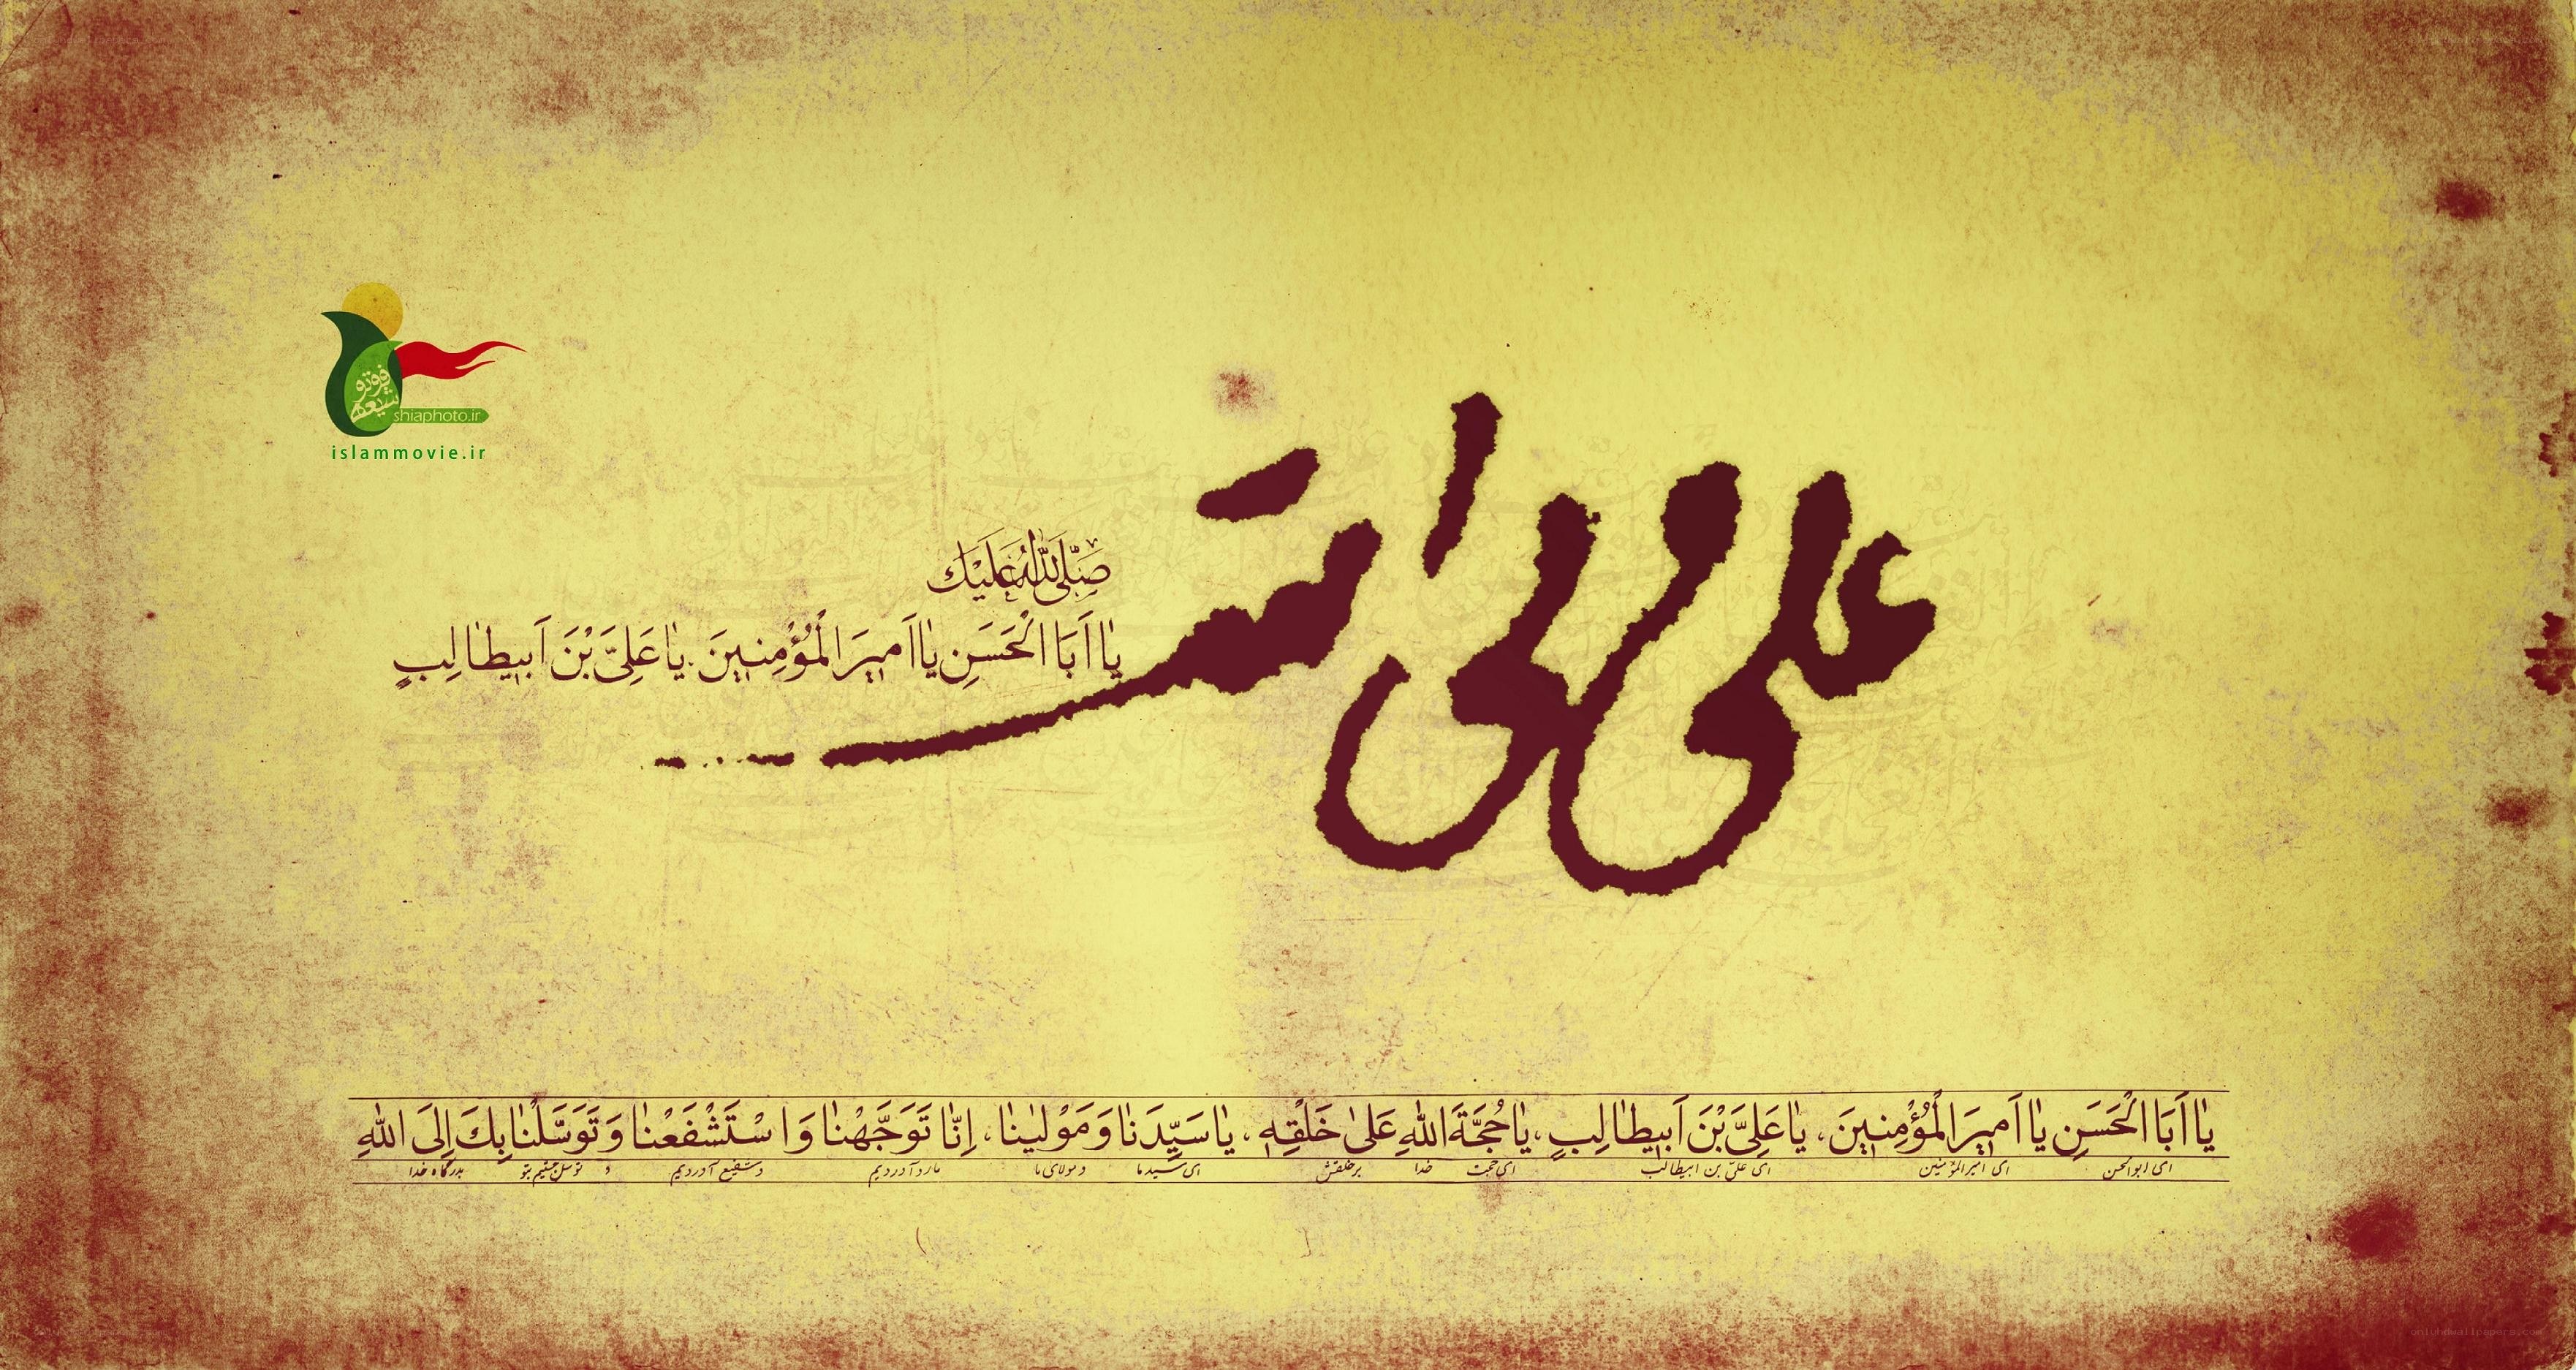 فوتو
شیعه
shiaphoto.ir
islammovie.ir
علی
صَلَّی اللهُ عَلَیْكَ
یٰا اَبَا الْحَسَنِ یٰا اَمیرَ الْمُؤْمِنینَ، یٰا عَلِیَّ بْنَ اَبیطٰالِبٍ
یٰا اَبَا الْحَسَنِ یٰا اَمیرَ الْمُؤْمِنینَ، یٰا عَلِیَّ بْنَ اَبیطٰالِبٍ، یٰا حُجَّةَ اللهِ عَلیٰ خَلْقِهِ، یٰا سَیِّدَنٰا وَ مَوْلیٰنٰا، اِنّٰا تَوَجَّهْنٰا وَ اسْتَشْفَعْنٰا وَ تَوَسَّلْنٰا بِكَ اِلَی اللهِ
ای ابوالحسن ای امیرالمؤمنین ای علی بن ابیطالب ای حجت خدا بر خلقش ای سید ما و مولای ما ما رو آوردیم و شفیع آوردیم و توسل جستیم بتو بدرگاه خدا
onlyhdwallpapers.com